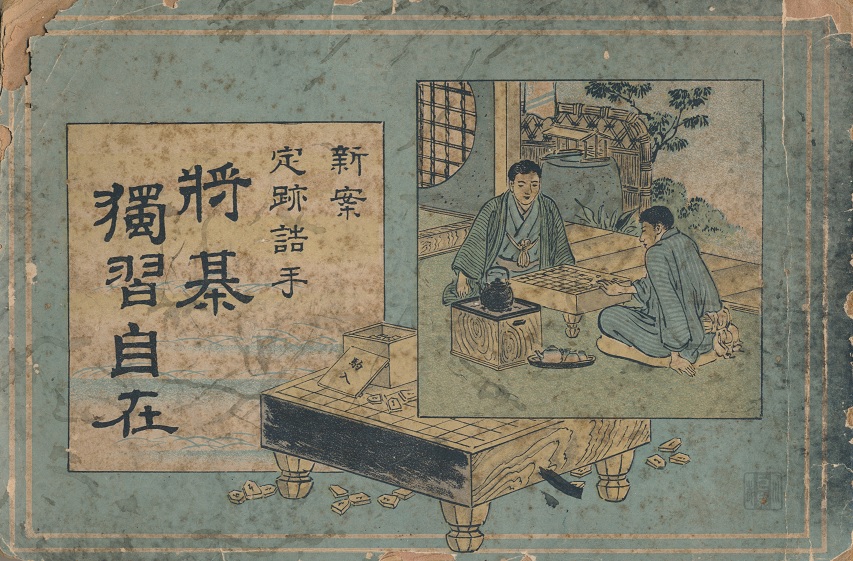 新案
定跡詰手
將棊
獨習自在
駒入